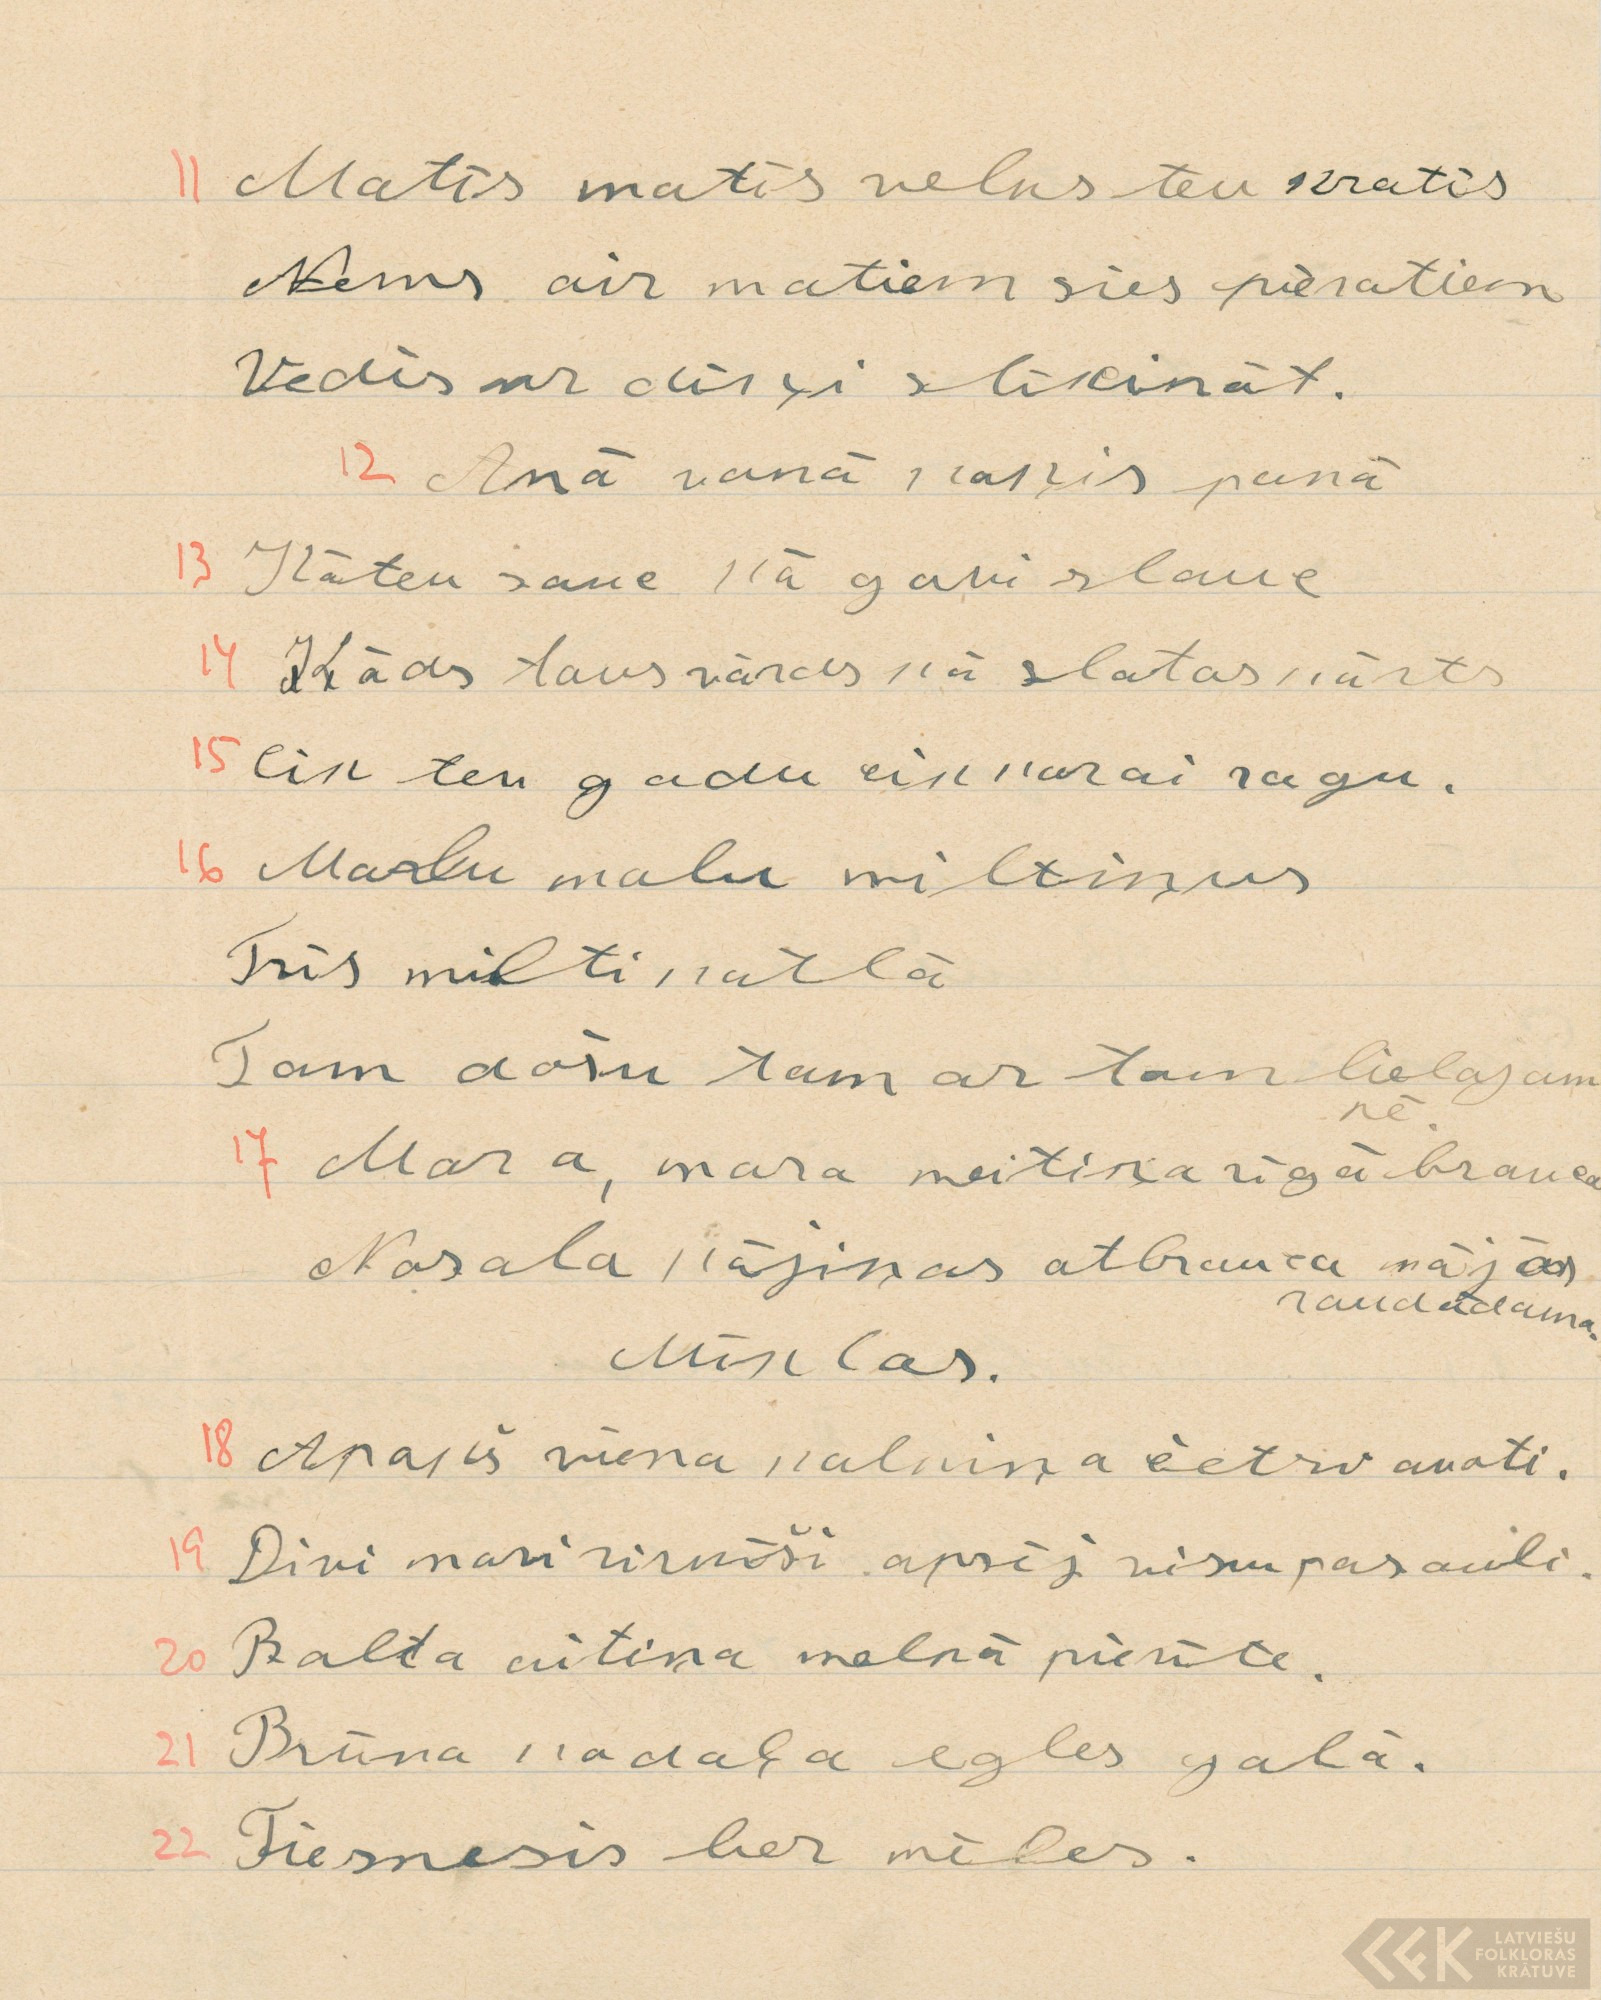 11 Matīs matīs velns tev kratīs
Ņems aiz matiem sies pie ratiem
Vedīs uz dīķi slīcināt.
12 Anā vanā kaķis panā
13 Kā tev sauc kā govi slauc
14 Kāds tavs vārds kā slotas kārts
15 Cik tev gadu cik kazai ragu.
16 Maļu malu miltiņus
Trīs milti katlā
Tam došu tam ar tam lielajam
nē.
17 Mara, mara meitiņa rīgā brauca
Nosala kājiņas atbrauca mājās
raudādama.
Mīklas.
18 Apakš viena kalniņa četri avoti.
19 Divi mazi zirnīši apsēj visu pasauli.
20 Balta aitiņa melnā pierīte.
21 Brūna kodaļa egles galā.
22 Tiesnesis bez mēles.
LATVIEŠU
FOLKLORAS
KRĀTUVE